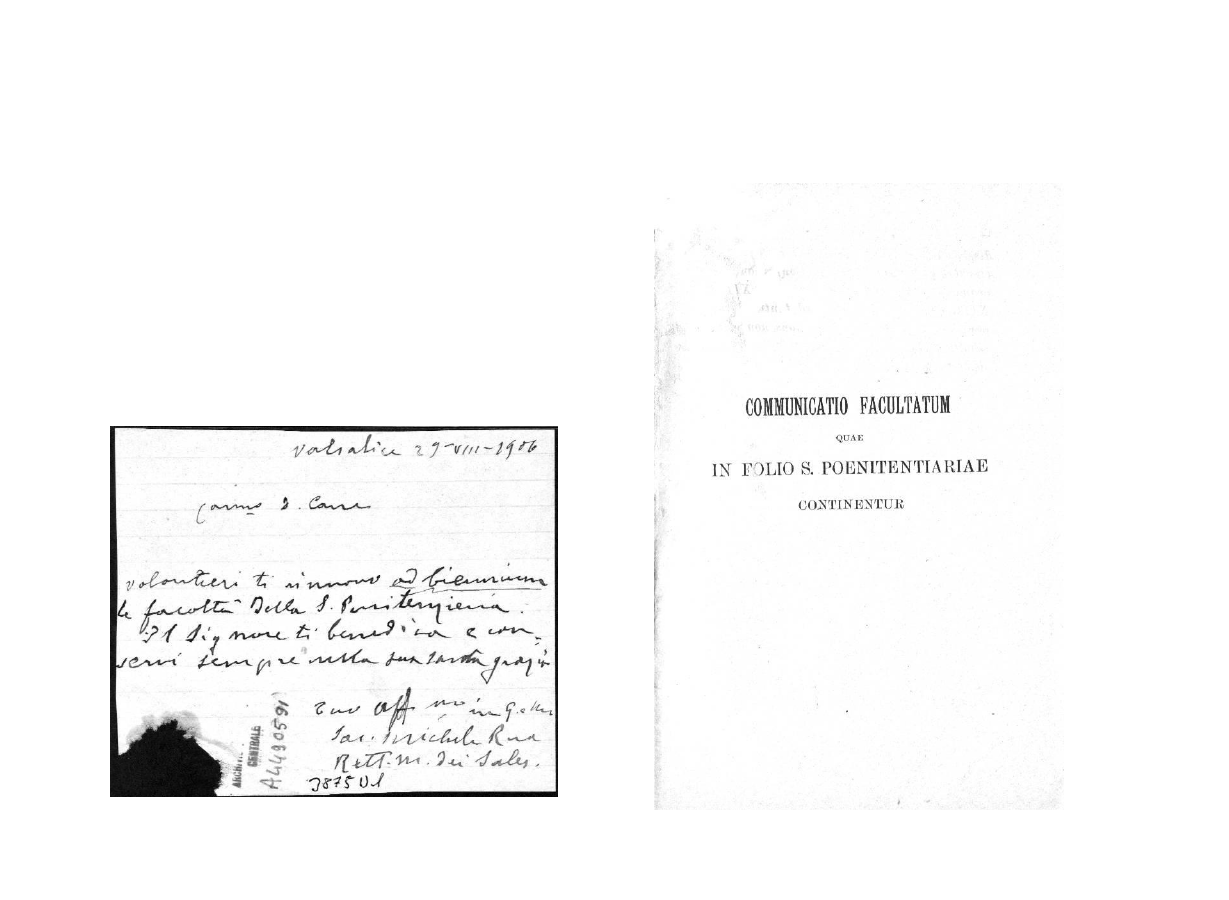 Valsalice 29-VIII-1906
Carmo D.
volontieri ti rinnovo ad biennium
le facoltà della S. Penitenzieria.
Il Signore ti benedica e con-
servi sempre nella sua santa grazia
tuo aff mo in G. e
Sac. Michele Rua
Rett. M. dei Sales.
3875
ARCHIVIO
CENTRALE
A4490591
COMMUNICATIO FACULTATUM
QUAE
IN FOLIO S. POENITENTIARIAE
CONTINENTUR